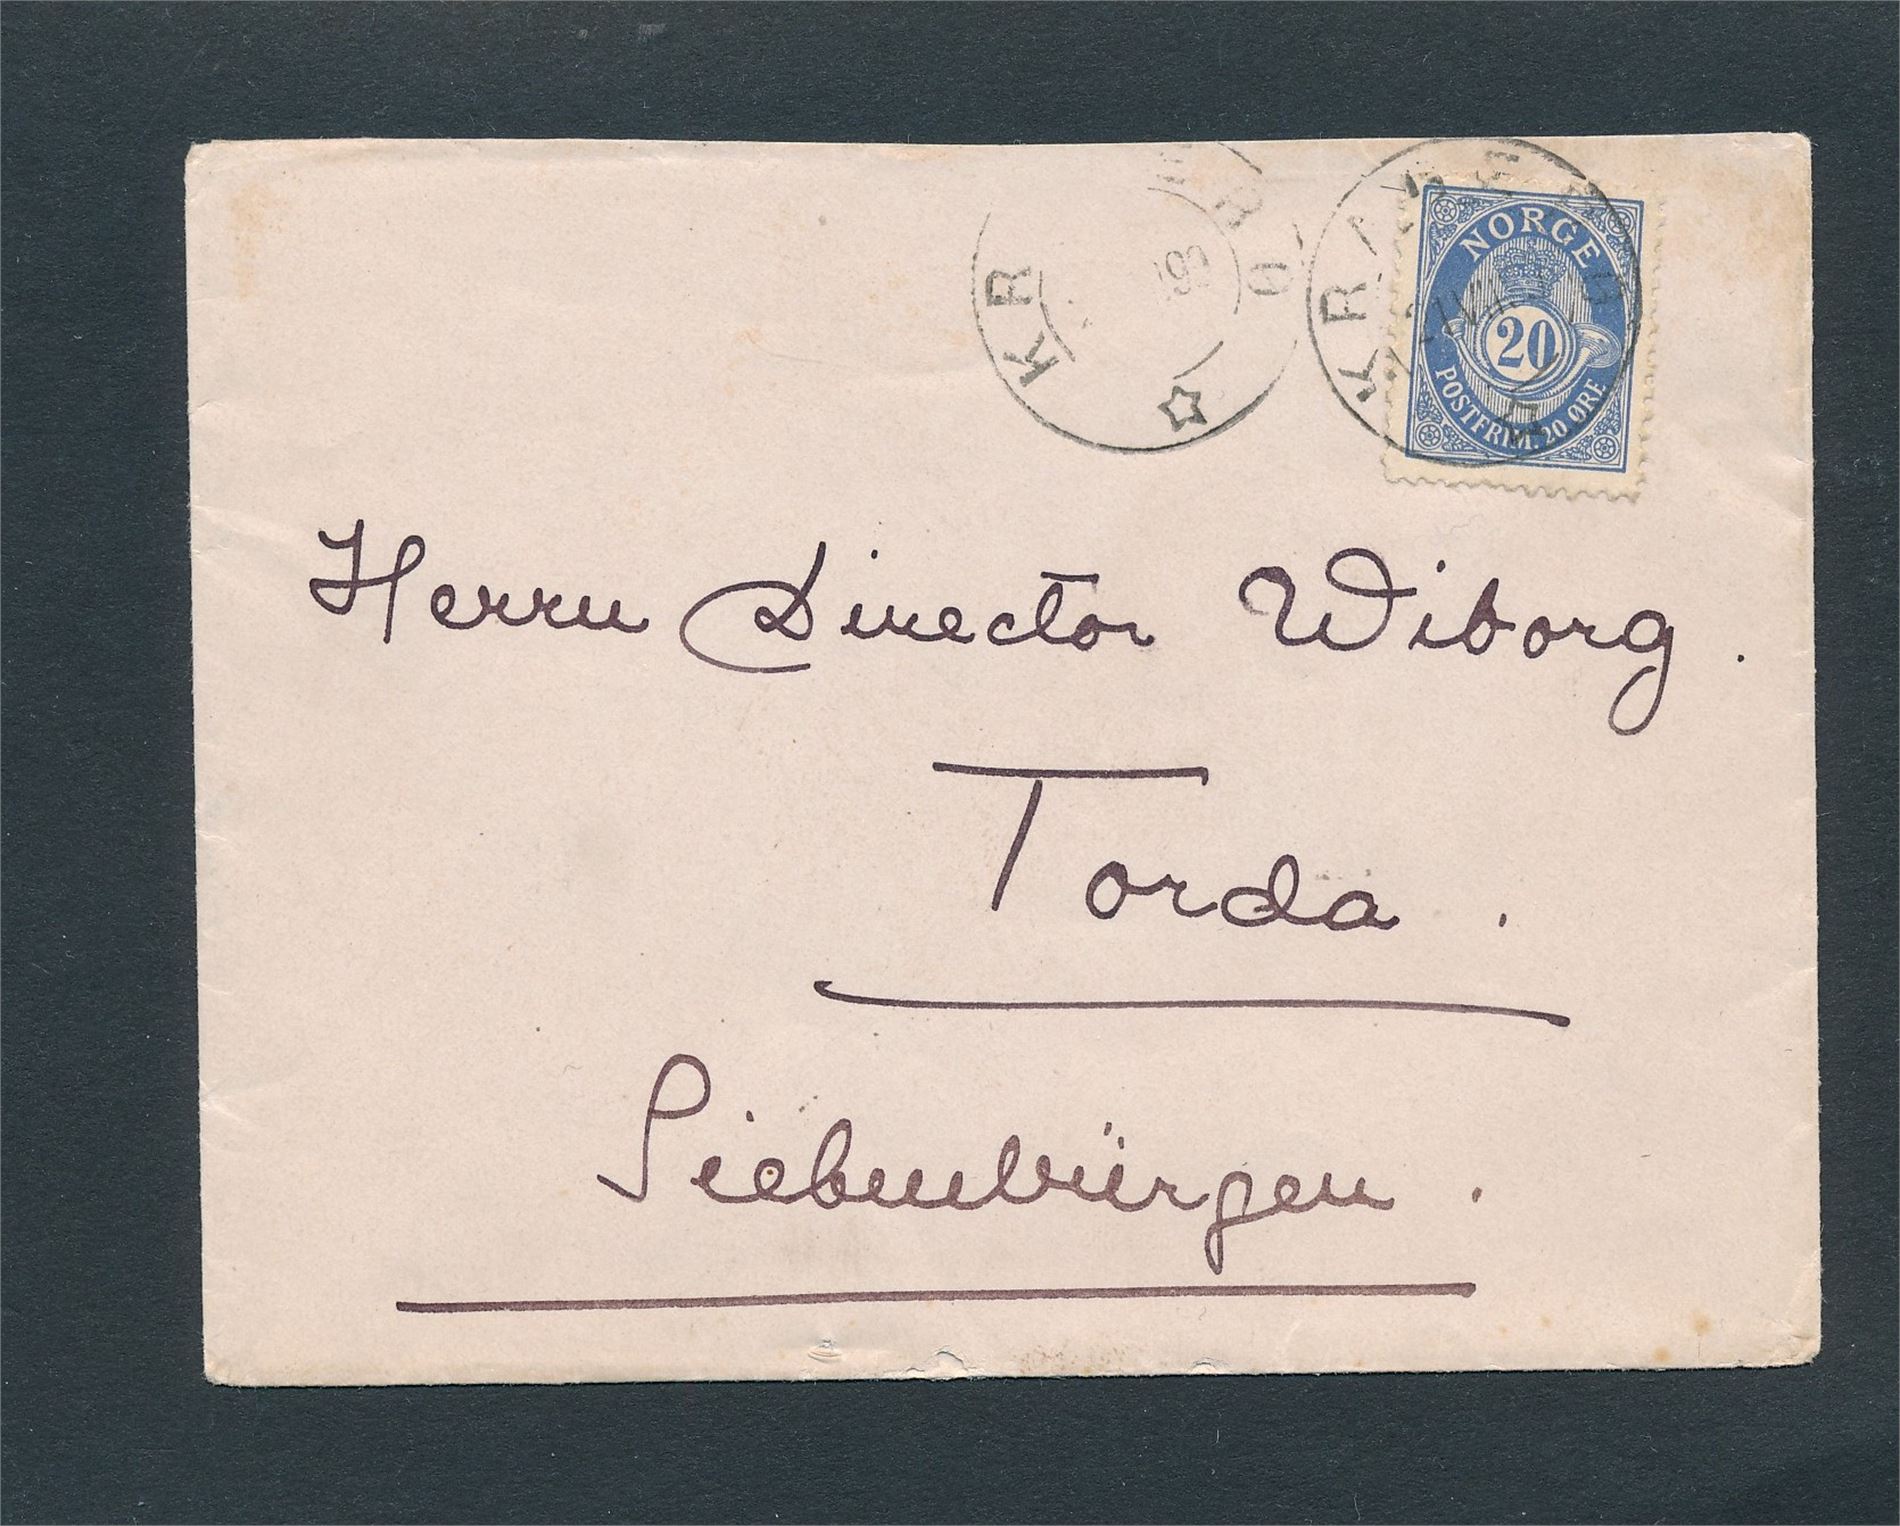 NORGE
20
POSTFRIM. 20 ØRE
KR
Herrn Director Wiborg.
Torda.
Siebenbürgen.